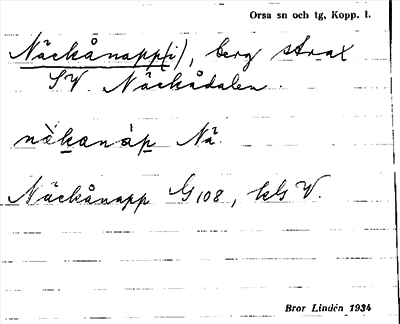 Orsa sn och tg, Kopp. l.
Näckånapp(i), berg strax
SV. Näckådalen.
nä̀kanàp Nä.
Näckånapp G 108, kls V.
Bror Lindén 1934